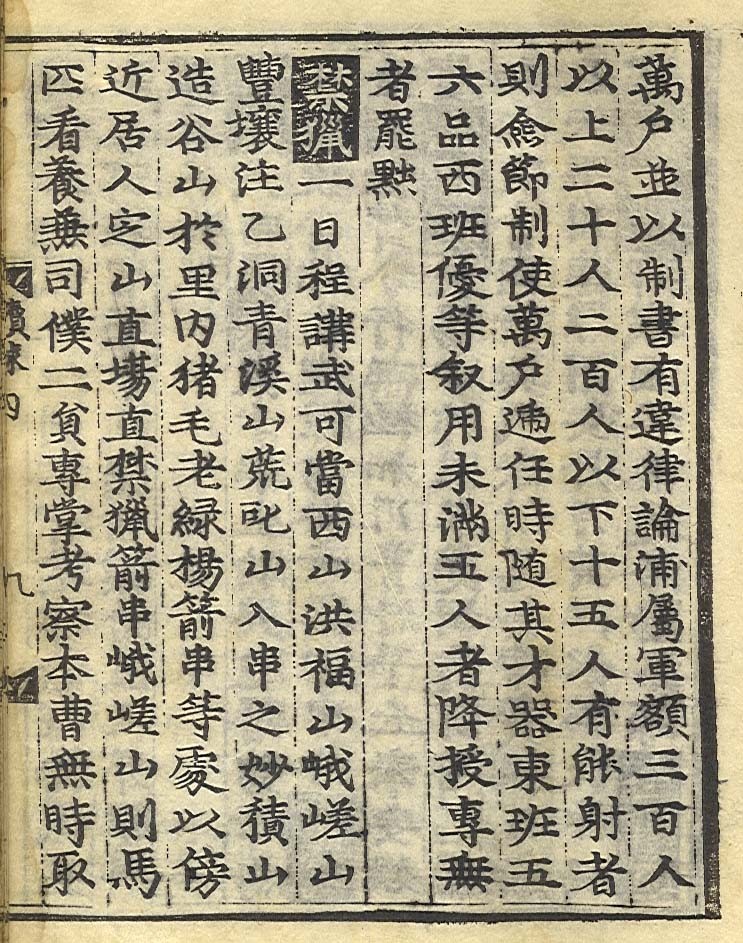 萬戶並以制書有違律論浦屬軍額三百人
以上二十人二百人以下十五人有能射者
則僉節制使萬戶遞任時随其才器東班五
六品西班優等叙用未滿五人者降授專無
者罷黜
禁獵一日程講武可當西山洪福山峨嵯山
豐壤注乙洞青溪山荒叱山入串之妙積山
造谷山於里內猪毛老緑楊箭串等處以傍
近居人㝎山直場直禁獵箭串峨嵯山則馬
匹看養兼司僕二負專掌考察本曹無時取
續录四
九